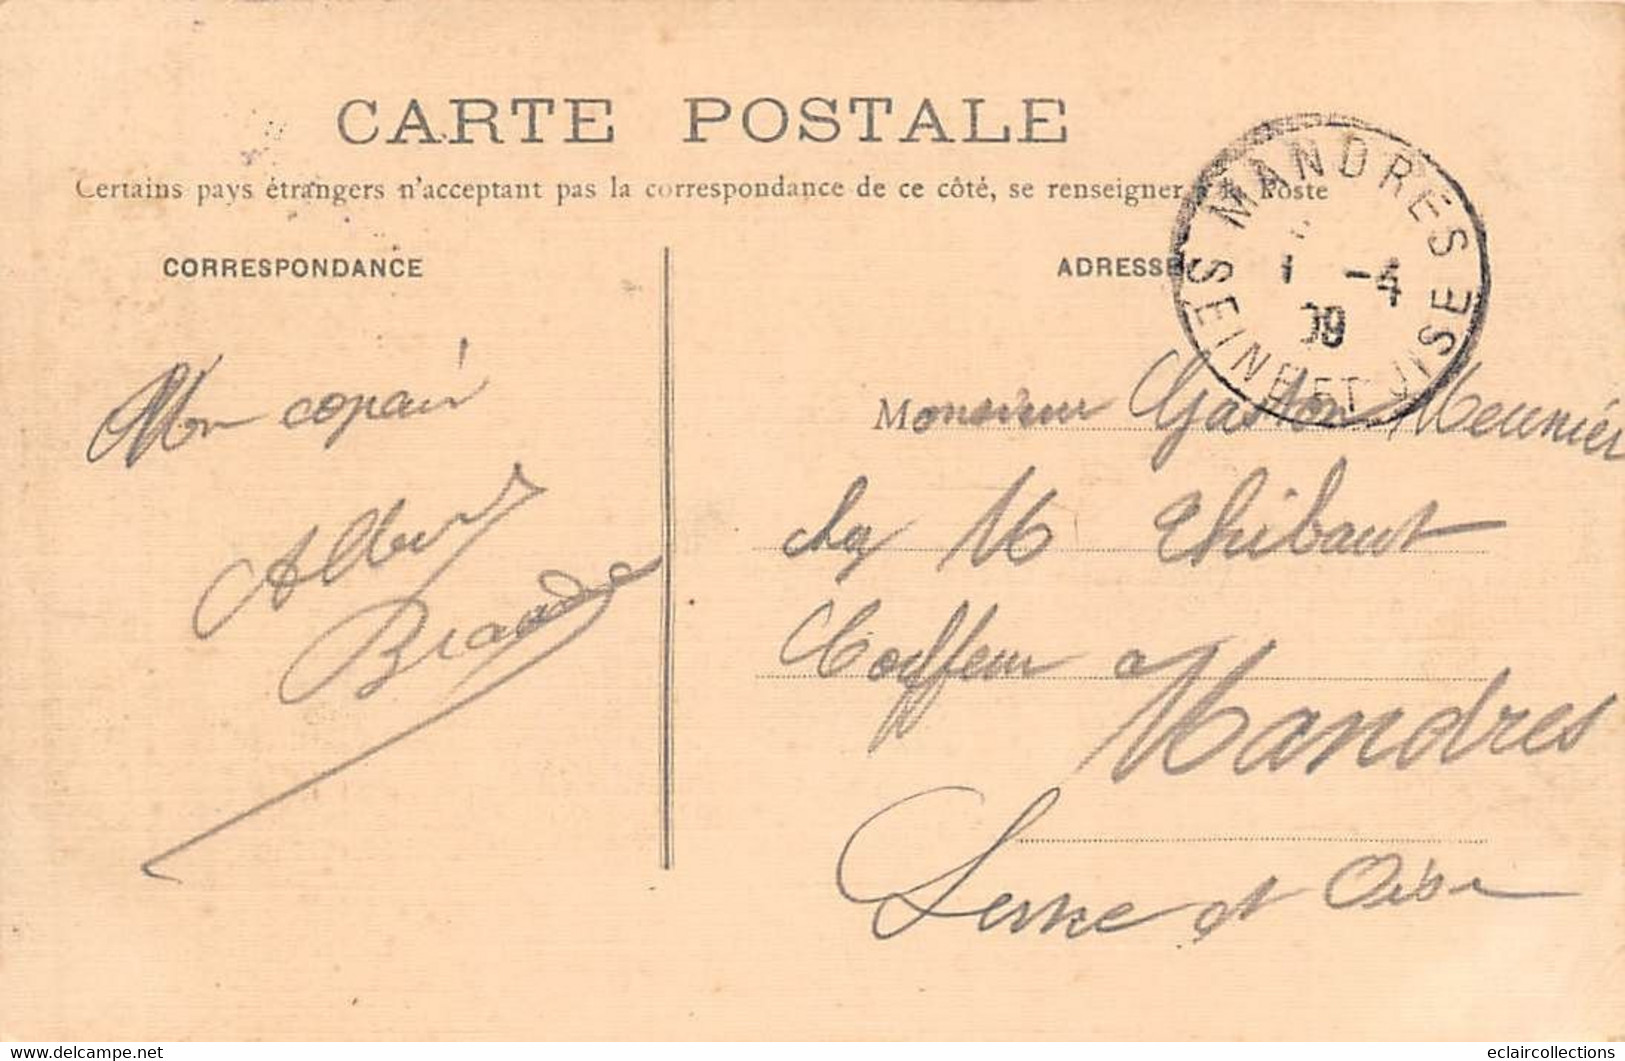 CARTE POSTALE
Certains pays étrangers n'acceptent pas la correspondance de ce côté, se renseigner à la Poste
CORRESPONDANCE
ADRESSE
MANDRES
1 -4
09
SEINE ET OISE
Mon copain
Albert
Monsieur Gaston Meunier
chez M Thibaut
Coiffeur a
Mandres
Seine et Oise
delcampe.net
eclaircollections